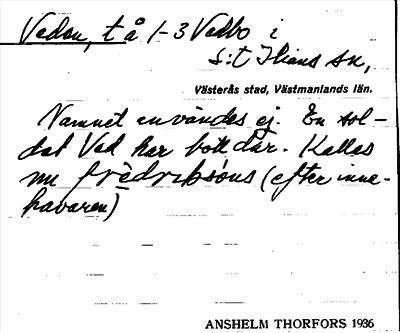 Veden, t å 1-3 Vedbo i
S:t Ilians sn,
Västerås stad, Västmanlands län.
Namnet användes ej. En sol-
dat Ved har bott där. Kallas
nu fredriksons (efter inne-
havaren)
ANSHELM THORFORS 1936